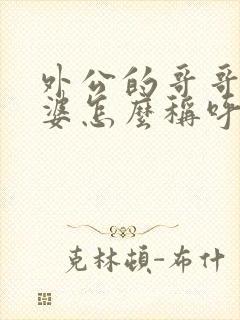 外公的哥哥
婆怎麼稱呼
克林頓-布什